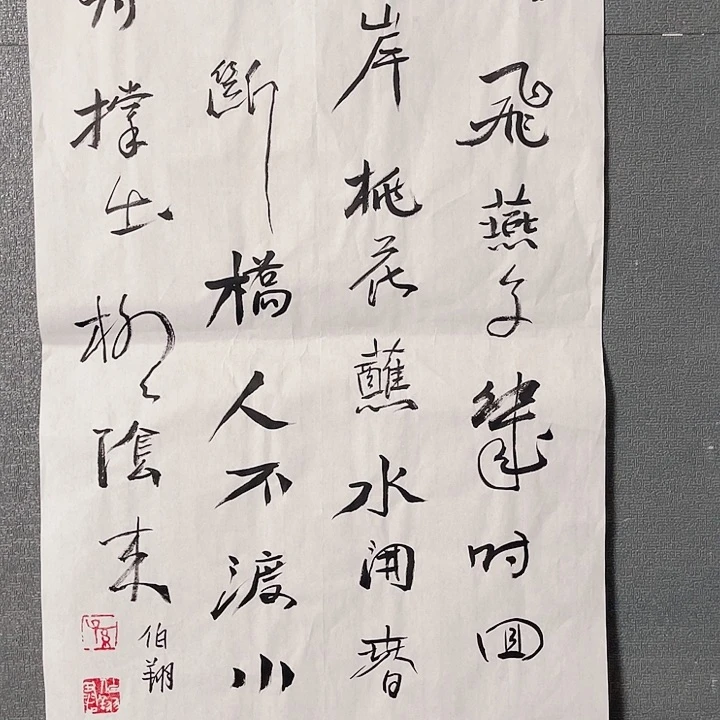 飛燕子幾時回
岸桃花蘸水開春
斷橋人不渡小
撐出柳陰来
伯翔